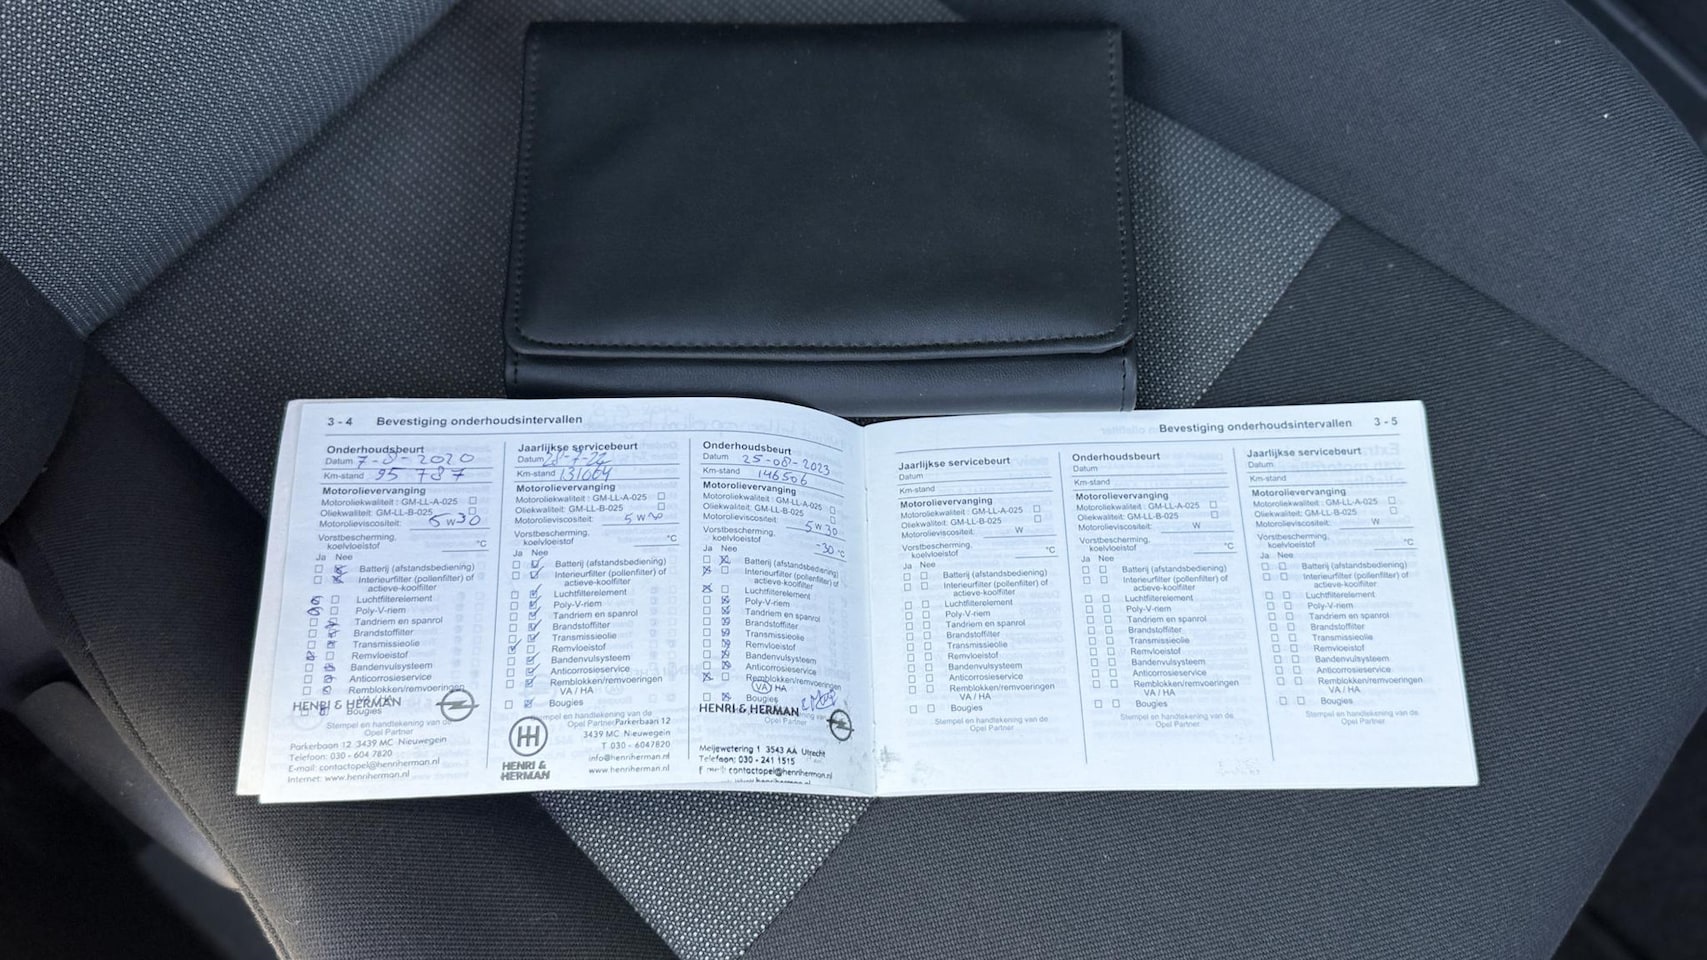 3 - 4 Bevestiging onderhoudsintervallen
Onderhoudsbeurt
Datum 7-8-2020
Km-stand 95 787
Motorolievervanging
Motoroliekwaliteit: GM-LL-A-025
Oliekwaliteit: GM-LL-B-025
Motorolieviscositeit: 5W30
Vorstbescherming,
koelvloeistof °C
Ja Nee
Batterij (afstandsbediening)
Interieurfilter (pollenfilter) of
actieve-koolfilter
Luchtfilterelement
Poly-V-riem
Tandriem en spanrol
Brandstoffilter
Transmissieolie
Remvloeistof
Bandenvulsysteem
Anticorrosieservice
Remblokken/remvoeringen
VA / HA
HENRI & HERMAN
Bougies
Stempel en handtekening van de
Opel Partner
Parkerbaan 12 3439 MC Nieuwegein
Telefoon: 030 - 604 7820
E-mail: contactopel@henriherman.nl
Internet: www.henriherman.nl
Jaarlijkse servicebeurt
Datum
Km-stand 131664
Motorolievervanging
Motoroliekwaliteit: GM-LL-A-025
Oliekwaliteit: GM-LL-B-025
Motorolieviscositeit:
Vorstbescherming,
koelvloeistof °C
Ja Nee
Batterij (afstandsbediening)
Interieurfilter (pollenfilter) of
actieve-koolfilter
Luchtfilterelement
Poly-V-riem
Tandriem en spanrol
Brandstoffilter
Transmissieolie
Remvloeistof
Bandenvulsysteem
Anticorrosieservice
Remblokken/remvoeringen
VA / HA
Bougies
Stempel en handtekening van de
Opel Partner Parkerbaan 12
3439 MC Nieuwegein
T 030 - 6047820
info@henriherman.nl
www.henriherman.nl
HENRI &
HERMAN
Onderhoudsbeurt
Datum 25-08-2023
Km-stand 146506
Motorolievervanging
Motoroliekwaliteit: GM-LL-A-025
Oliekwaliteit: GM-LL-B-025
Motorolieviscositeit: 5W30
Vorstbescherming,
koelvloeistof -30 °C
Ja Nee
Batterij (afstandsbediening)
Interieurfilter (pollenfilter) of
actieve-koolfilter
Luchtfilterelement
Poly-V-riem
Tandriem en spanrol
Brandstoffilter
Transmissieolie
Remvloeistof
Bandenvulsysteem
Anticorrosieservice
Remblokken/remvoeringen
VA HA
Bougies
HENRI & HERMAN
Opel Partner
Meijewetering 1 3543 AA Utrecht
Telefoon: 030 - 241 1515
E-mail: contactopel@henriherman.nl
Bevestiging onderhoudsintervallen 3 - 5
Jaarlijkse servicebeurt
Datum
Km-stand
Motorolievervanging
Motoroliekwaliteit: GM-LL-A-025
Oliekwaliteit: GM-LL-B-025
Motorolieviscositeit: W
Vorstbescherming,
koelvloeistof °C
Ja Nee
Batterij (afstandsbediening)
Interieurfilter (pollenfilter) of
actieve-koolfilter
Luchtfilterelement
Poly-V-riem
Tandriem en spanrol
Brandstoffilter
Transmissieolie
Remvloeistof
Bandenvulsysteem
Anticorrosieservice
Remblokken/remvoeringen
VA / HA
Bougies
Stempel en handtekening van de
Opel Partner
Onderhoudsbeurt
Datum
Km-stand
Motorolievervanging
Motoroliekwaliteit: GM-LL-A-025
Oliekwaliteit: GM-LL-B-025
Motorolieviscositeit: W
Vorstbescherming,
koelvloeistof °C
Ja Nee
Batterij (afstandsbediening)
Interieurfilter (pollenfilter) of
actieve-koolfilter
Luchtfilterelement
Poly-V-riem
Tandriem en spanrol
Brandstoffilter
Transmissieolie
Remvloeistof
Bandenvulsysteem
Anticorrosieservice
Remblokken/remvoeringen
VA / HA
Bougies
Stempel en handtekening van de
Opel Partner
Jaarlijkse servicebeurt
Datum
Km-stand
Motorolievervanging
Motoroliekwaliteit: GM-LL-A-025
Oliekwaliteit: GM-LL-B-025
Motorolieviscositeit: W
Vorstbescherming,
koelvloeistof °C
Ja Nee
Batterij (afstandsbediening)
Interieurfilter (pollenfilter) of
actieve-koolfilter
Luchtfilterelement
Poly-V-riem
Tandriem en spanrol
Brandstoffilter
Transmissieolie
Remvloeistof
Bandenvulsysteem
Anticorrosieservice
Remblokken/remvoeringen
VA / HA
Bougies
Stempel en handtekening van de
Opel Partner